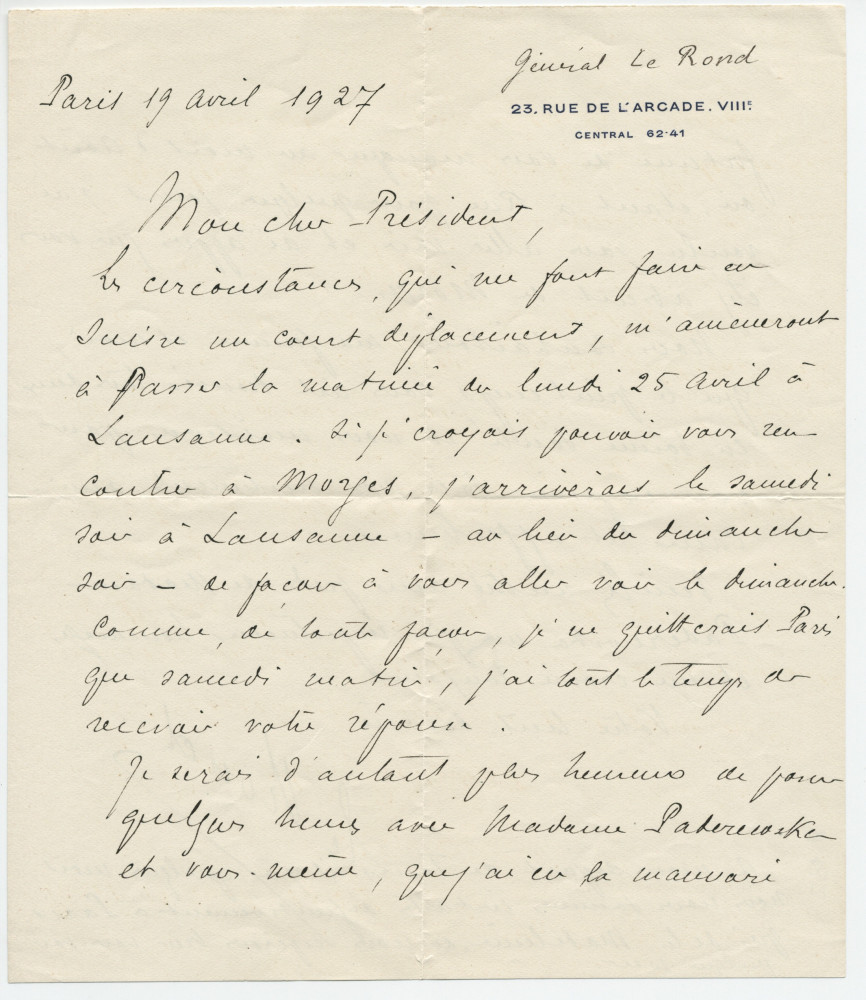 Général Le Rond
23, RUE DE L'ARCADE. VIIIE
CENTRAL 62-41
Paris 19 avril 1927
Mon cher Président,
Les circonstances, qui me font faire en
Suisse un court déplacement, m'amèneront
à passer la matinée du lundi 25 avril à
Lausanne. Si je croyais pouvoir vous ren
contrer à Morges, j'arriverais le samedi
soir à Lausanne – au lieu du dimanche
soir – de façon à vous aller voir le dimanche.
Comme, de toute façon, je ne quitterais Paris
que samedi matin, j'ai tout le temps de
recevoir votre réponse.
Je serais d'autant plus heureux de passer
quelques heures avec Madame Paderewska
et vous-même, que j'ai eu la mauvaise